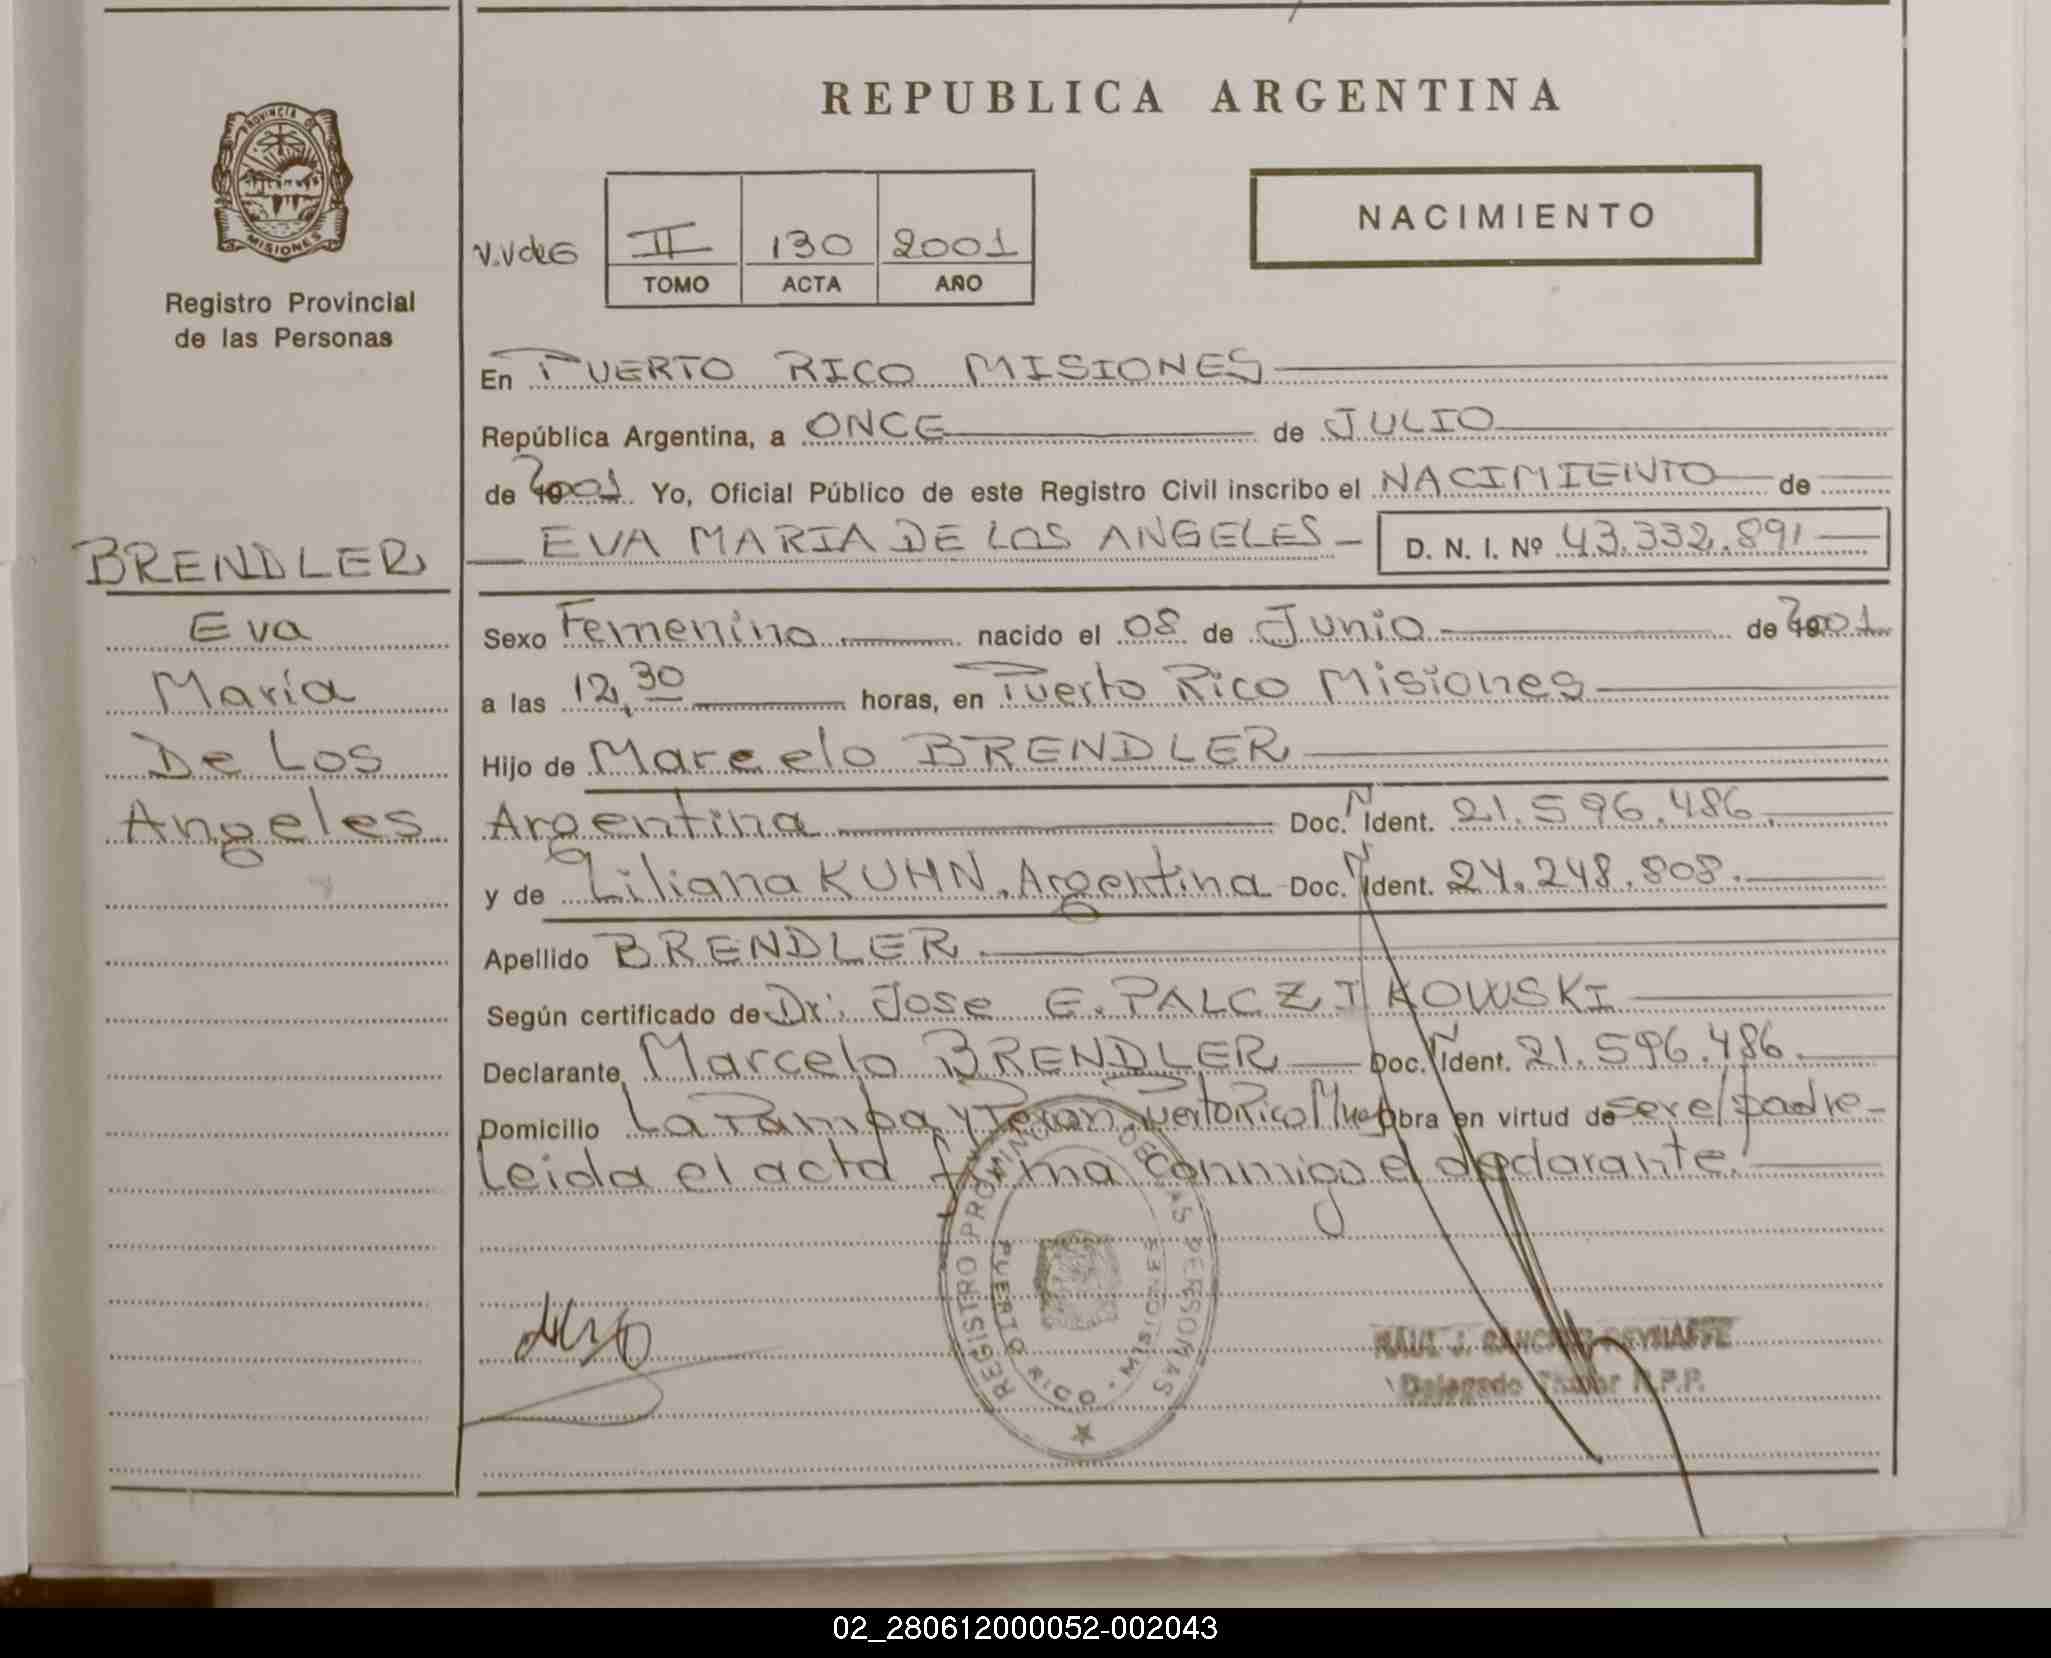 REPUBLICA ARGENTINA
PROVINCIA DE
MISIONES
Registro Provincial
de las Personas
V.VdeG
II 130 2001
TOMO ACTA AÑO
NACIMIENTO
En PUERTO RICO MISIONES
República Argentina, a ONCE de JULIO
de 2001 Yo, Oficial Público de este Registro Civil inscribo el NACIMIENTO de
EVA MARIA DE LOS ANGELES D. N. I. Nº 43.332.891
BRENDLER
Eva
María
De Los
Angeles
Sexo Femenino nacido el 08 de Junio de 2001
a las 12,30 horas, en Puerto Rico Misiones
Hijo de Marcelo BRENDLER
Argentina Doc. N Ident. 21.596.486.
y de Liliana KUHN, Argentina Doc. N Ident. 24.248.808.
Apellido BRENDLER
Según certificado de Dr: Jose E. PALCZIKOWSKI
Declarante, Marcelo BRENDLER Doc. N Ident. 21.596.486.
Domicilio La Pampa y Peron, Puerto Rico Mnes obra en virtud de ser el padre
Leida el acta firma conmigo el declarante.
REGISTRO PROVINCIAL DE LAS PERSONAS
PUERTO RICO - MISIONES
RAUL J. SANCHEZ
Delegado Titular R.P.P.
02_280612000052-002043